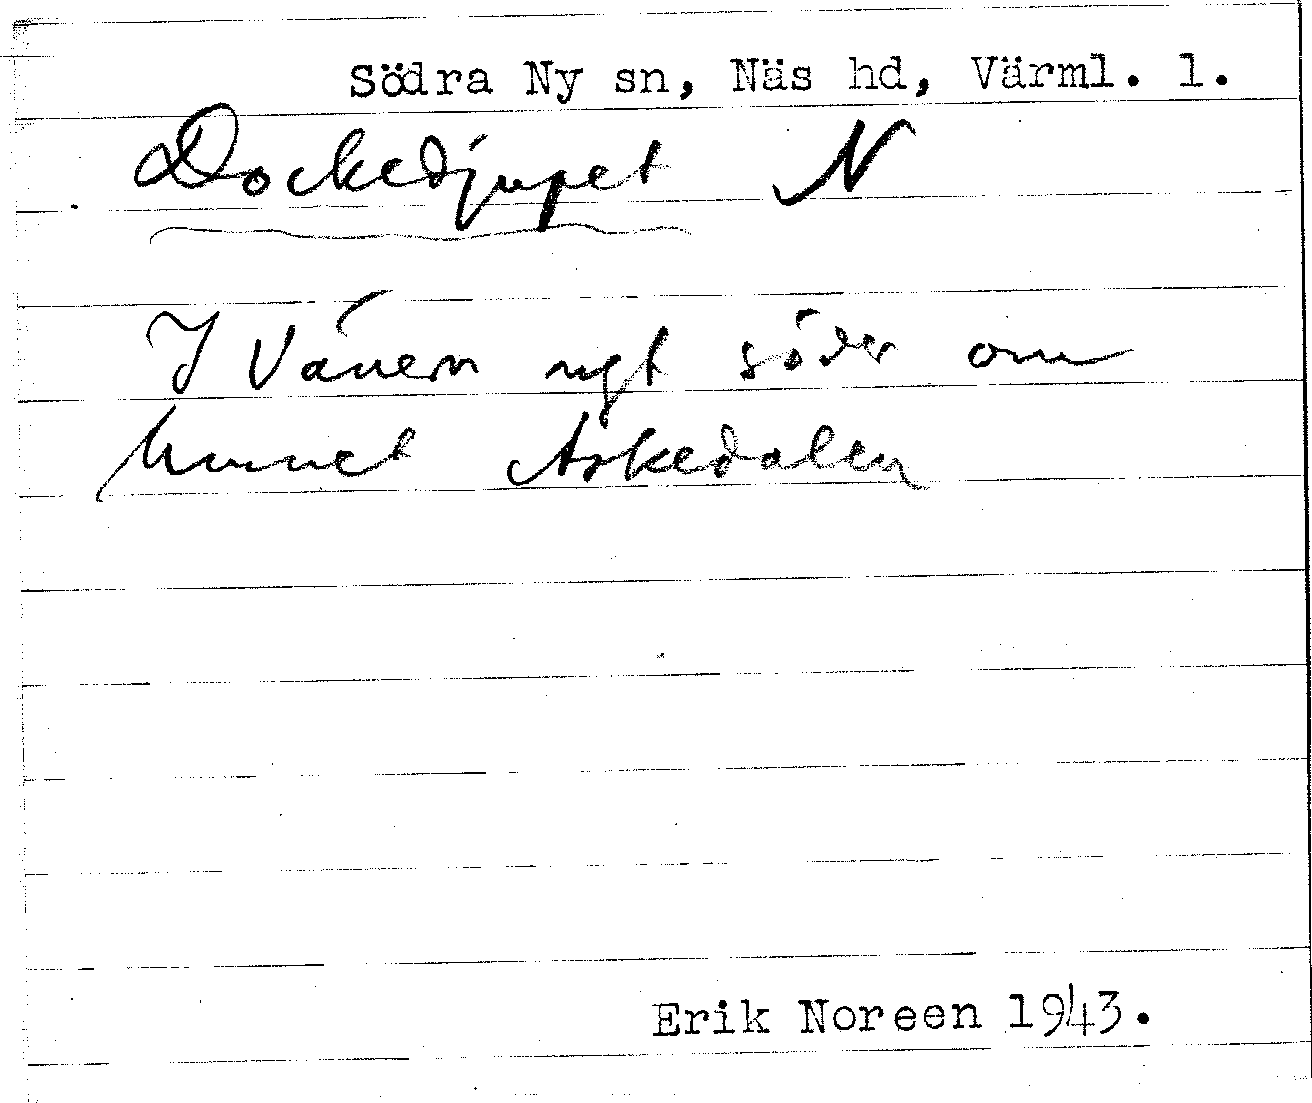 Södra Ny sn, Näs hd, Värml. l.
Dockedjupet N
I Vänern ngt söder om
hunnet Askedalen
Erik Noreen 1943.